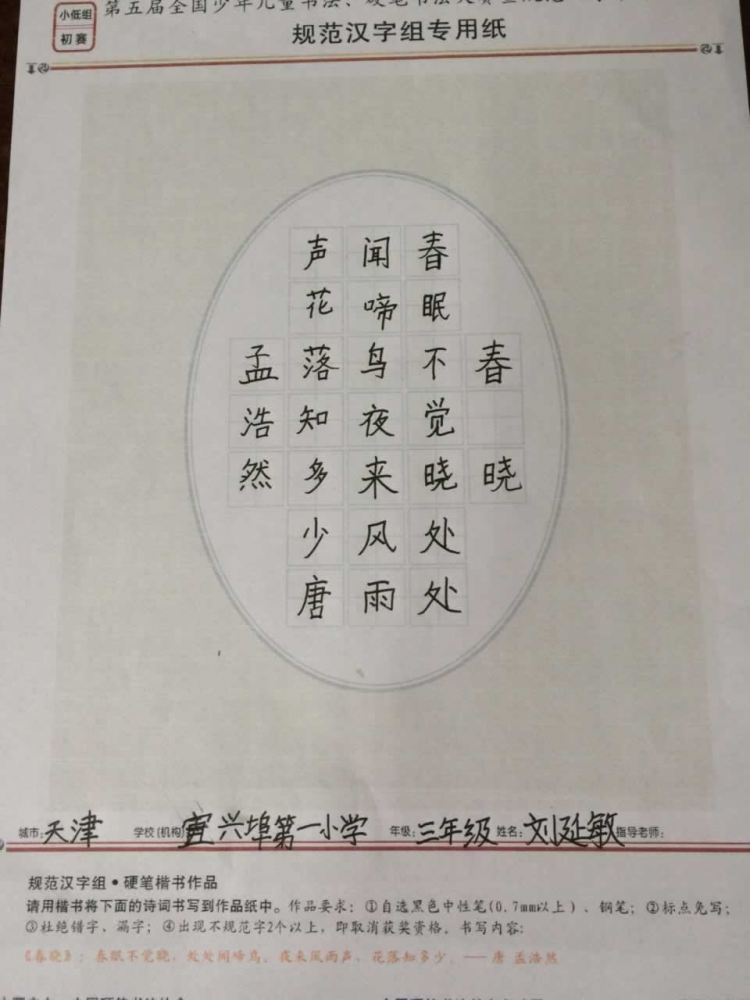 小低组
初赛
第五届全国少年儿童书法、硬笔书法大赛
规范汉字组专用纸
春晓
春眠不觉晓处处
闻啼鸟夜来风雨
声花落知多少唐
孟浩然
城市:天津 学校(机构)宜兴埠第一小学 年级:三年级 姓名:刘延敏 指导老师:
规范汉字组•硬笔楷书作品
请用楷书将下面的诗词书写到作品纸中。作品要求：①自选黑色中性笔(0.7mm以上)、钢笔；②标点免写；
③杜绝错字、漏字；④出现不规范字2个以上，即取消获奖资格。书写内容:
《春晓》：春眠不觉晓，处处闻啼鸟。夜来风雨声，花落知多少。——唐 孟浩然